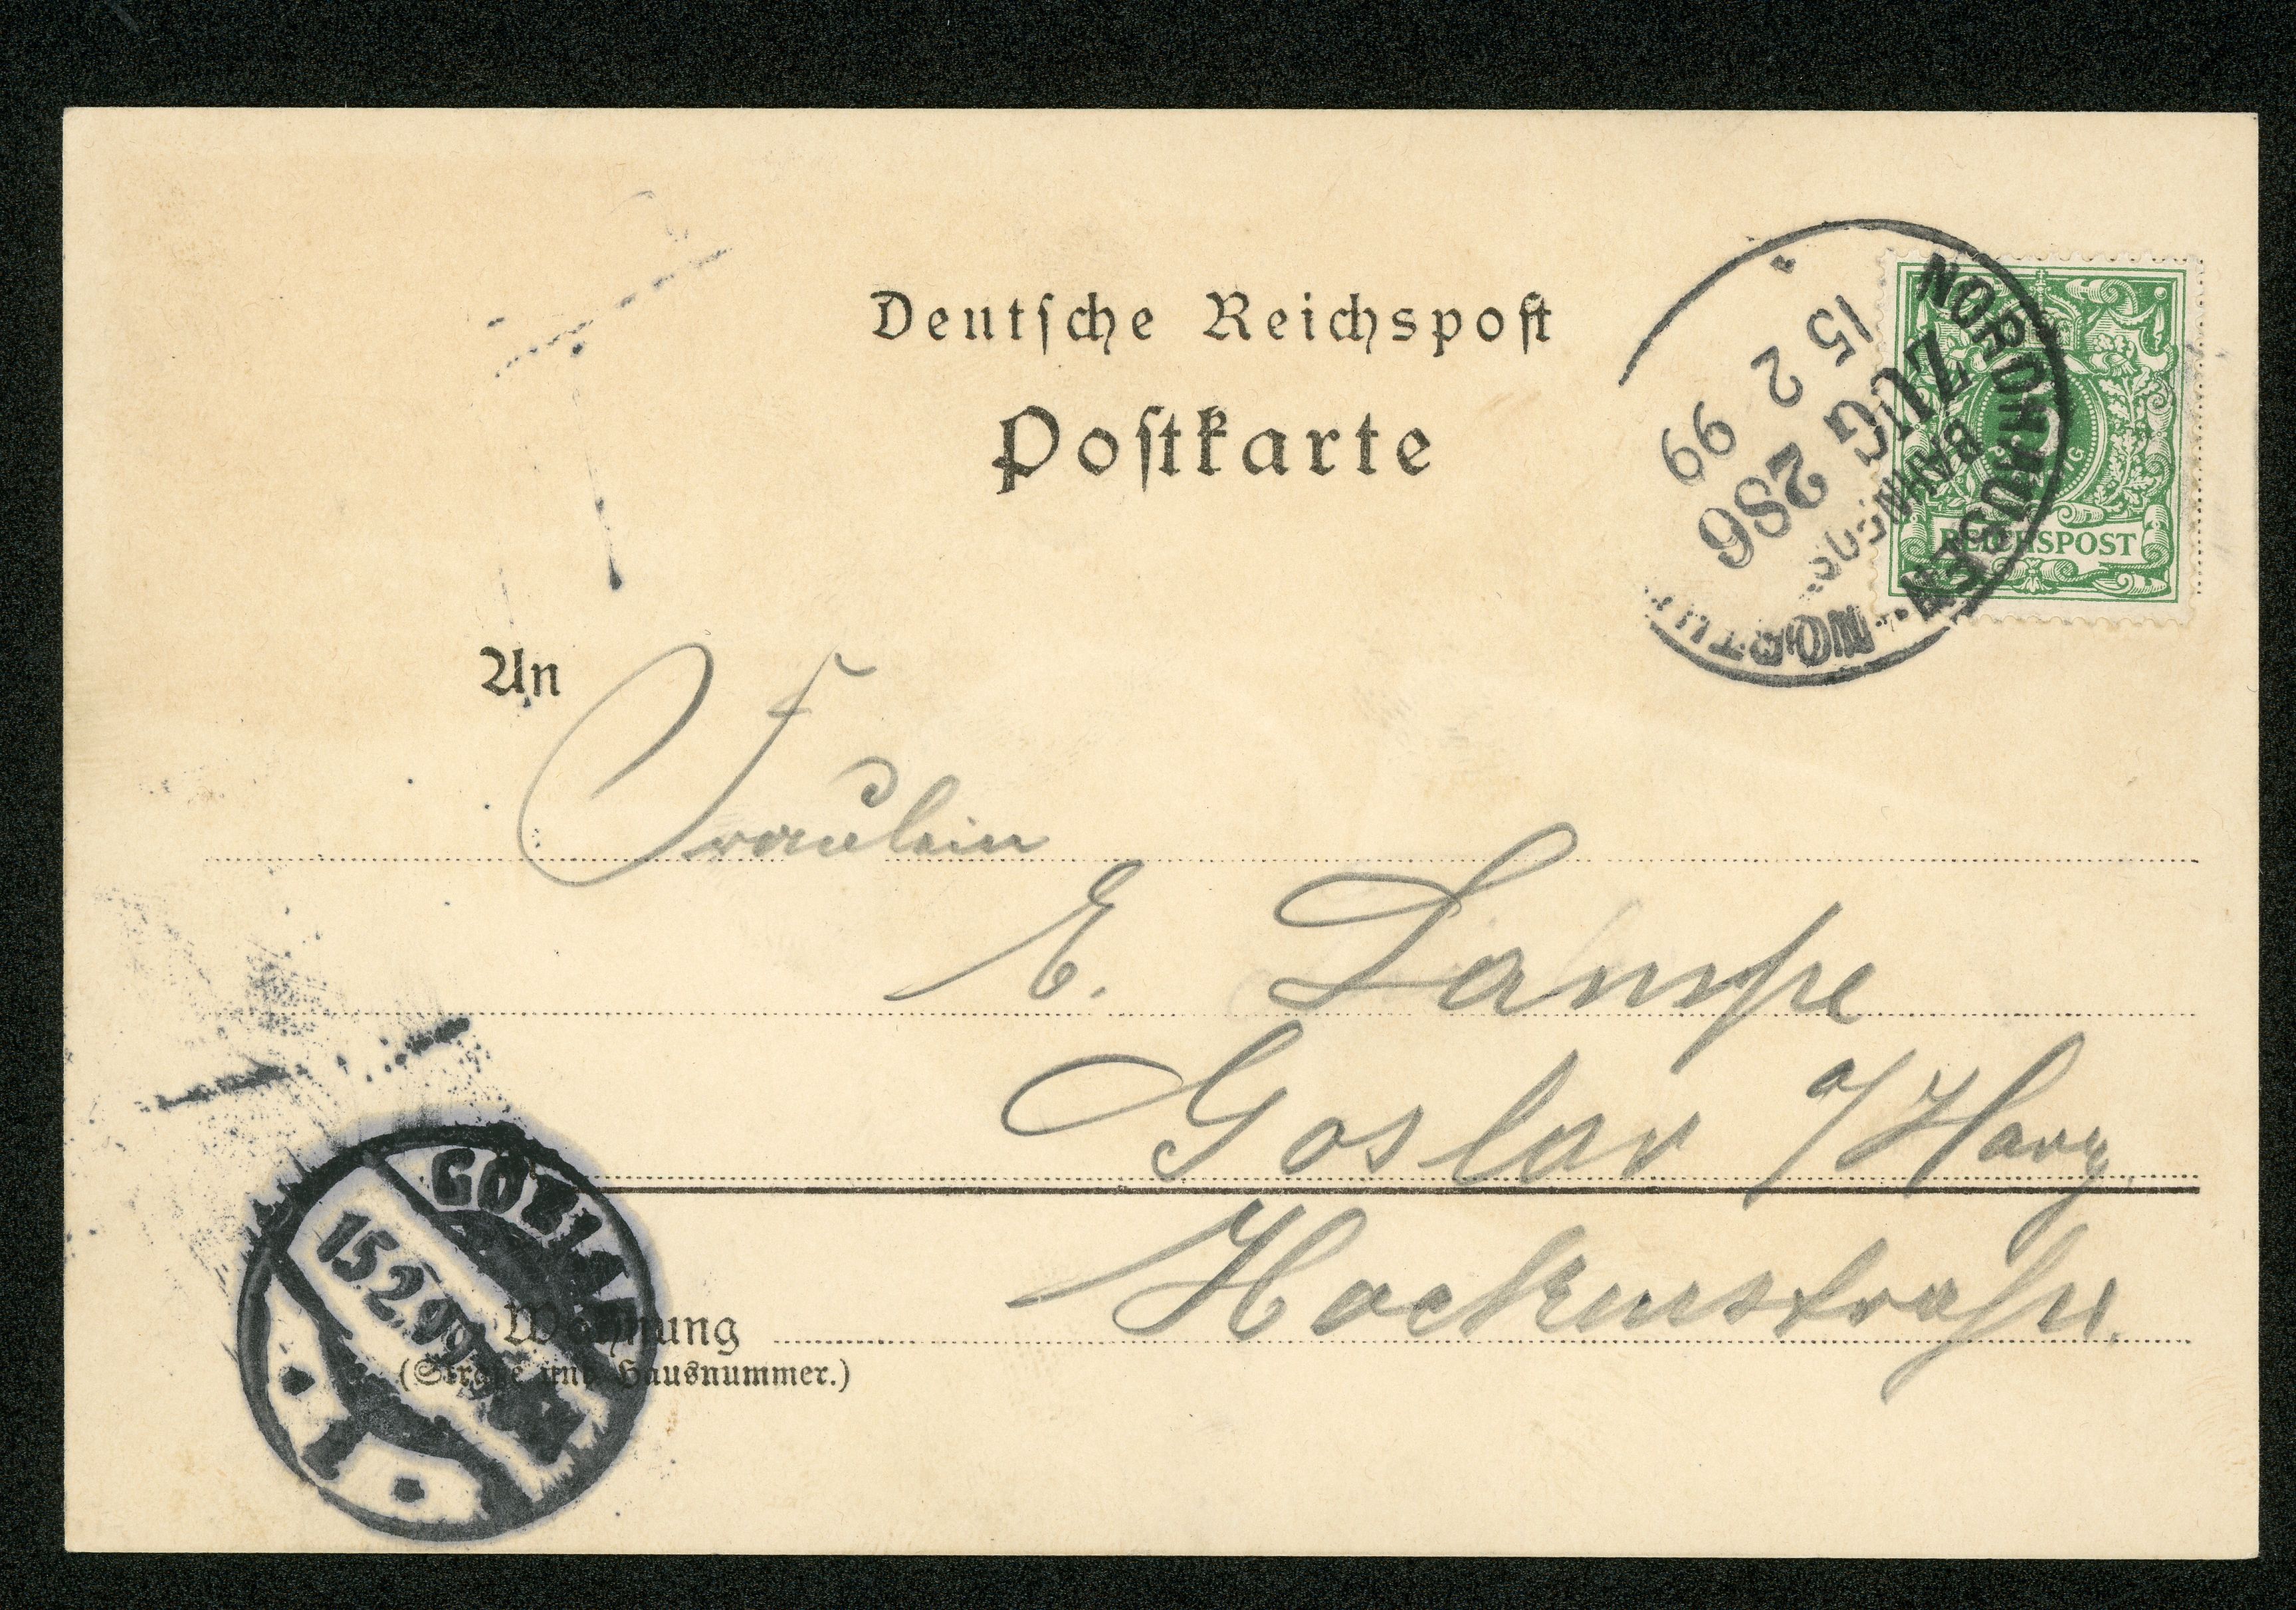 Deutsche Reichspost
Postkarte
NORDHAUSEN
BAHNPOST
ZUG 286
15 2 99
REICHSPOST
An
Fräulein
E. Lampe
Goslar a/Harz
Hockenstraße.
GOSLAR
15.2.99
1
Wohnung
(Straße und Hausnummer.)